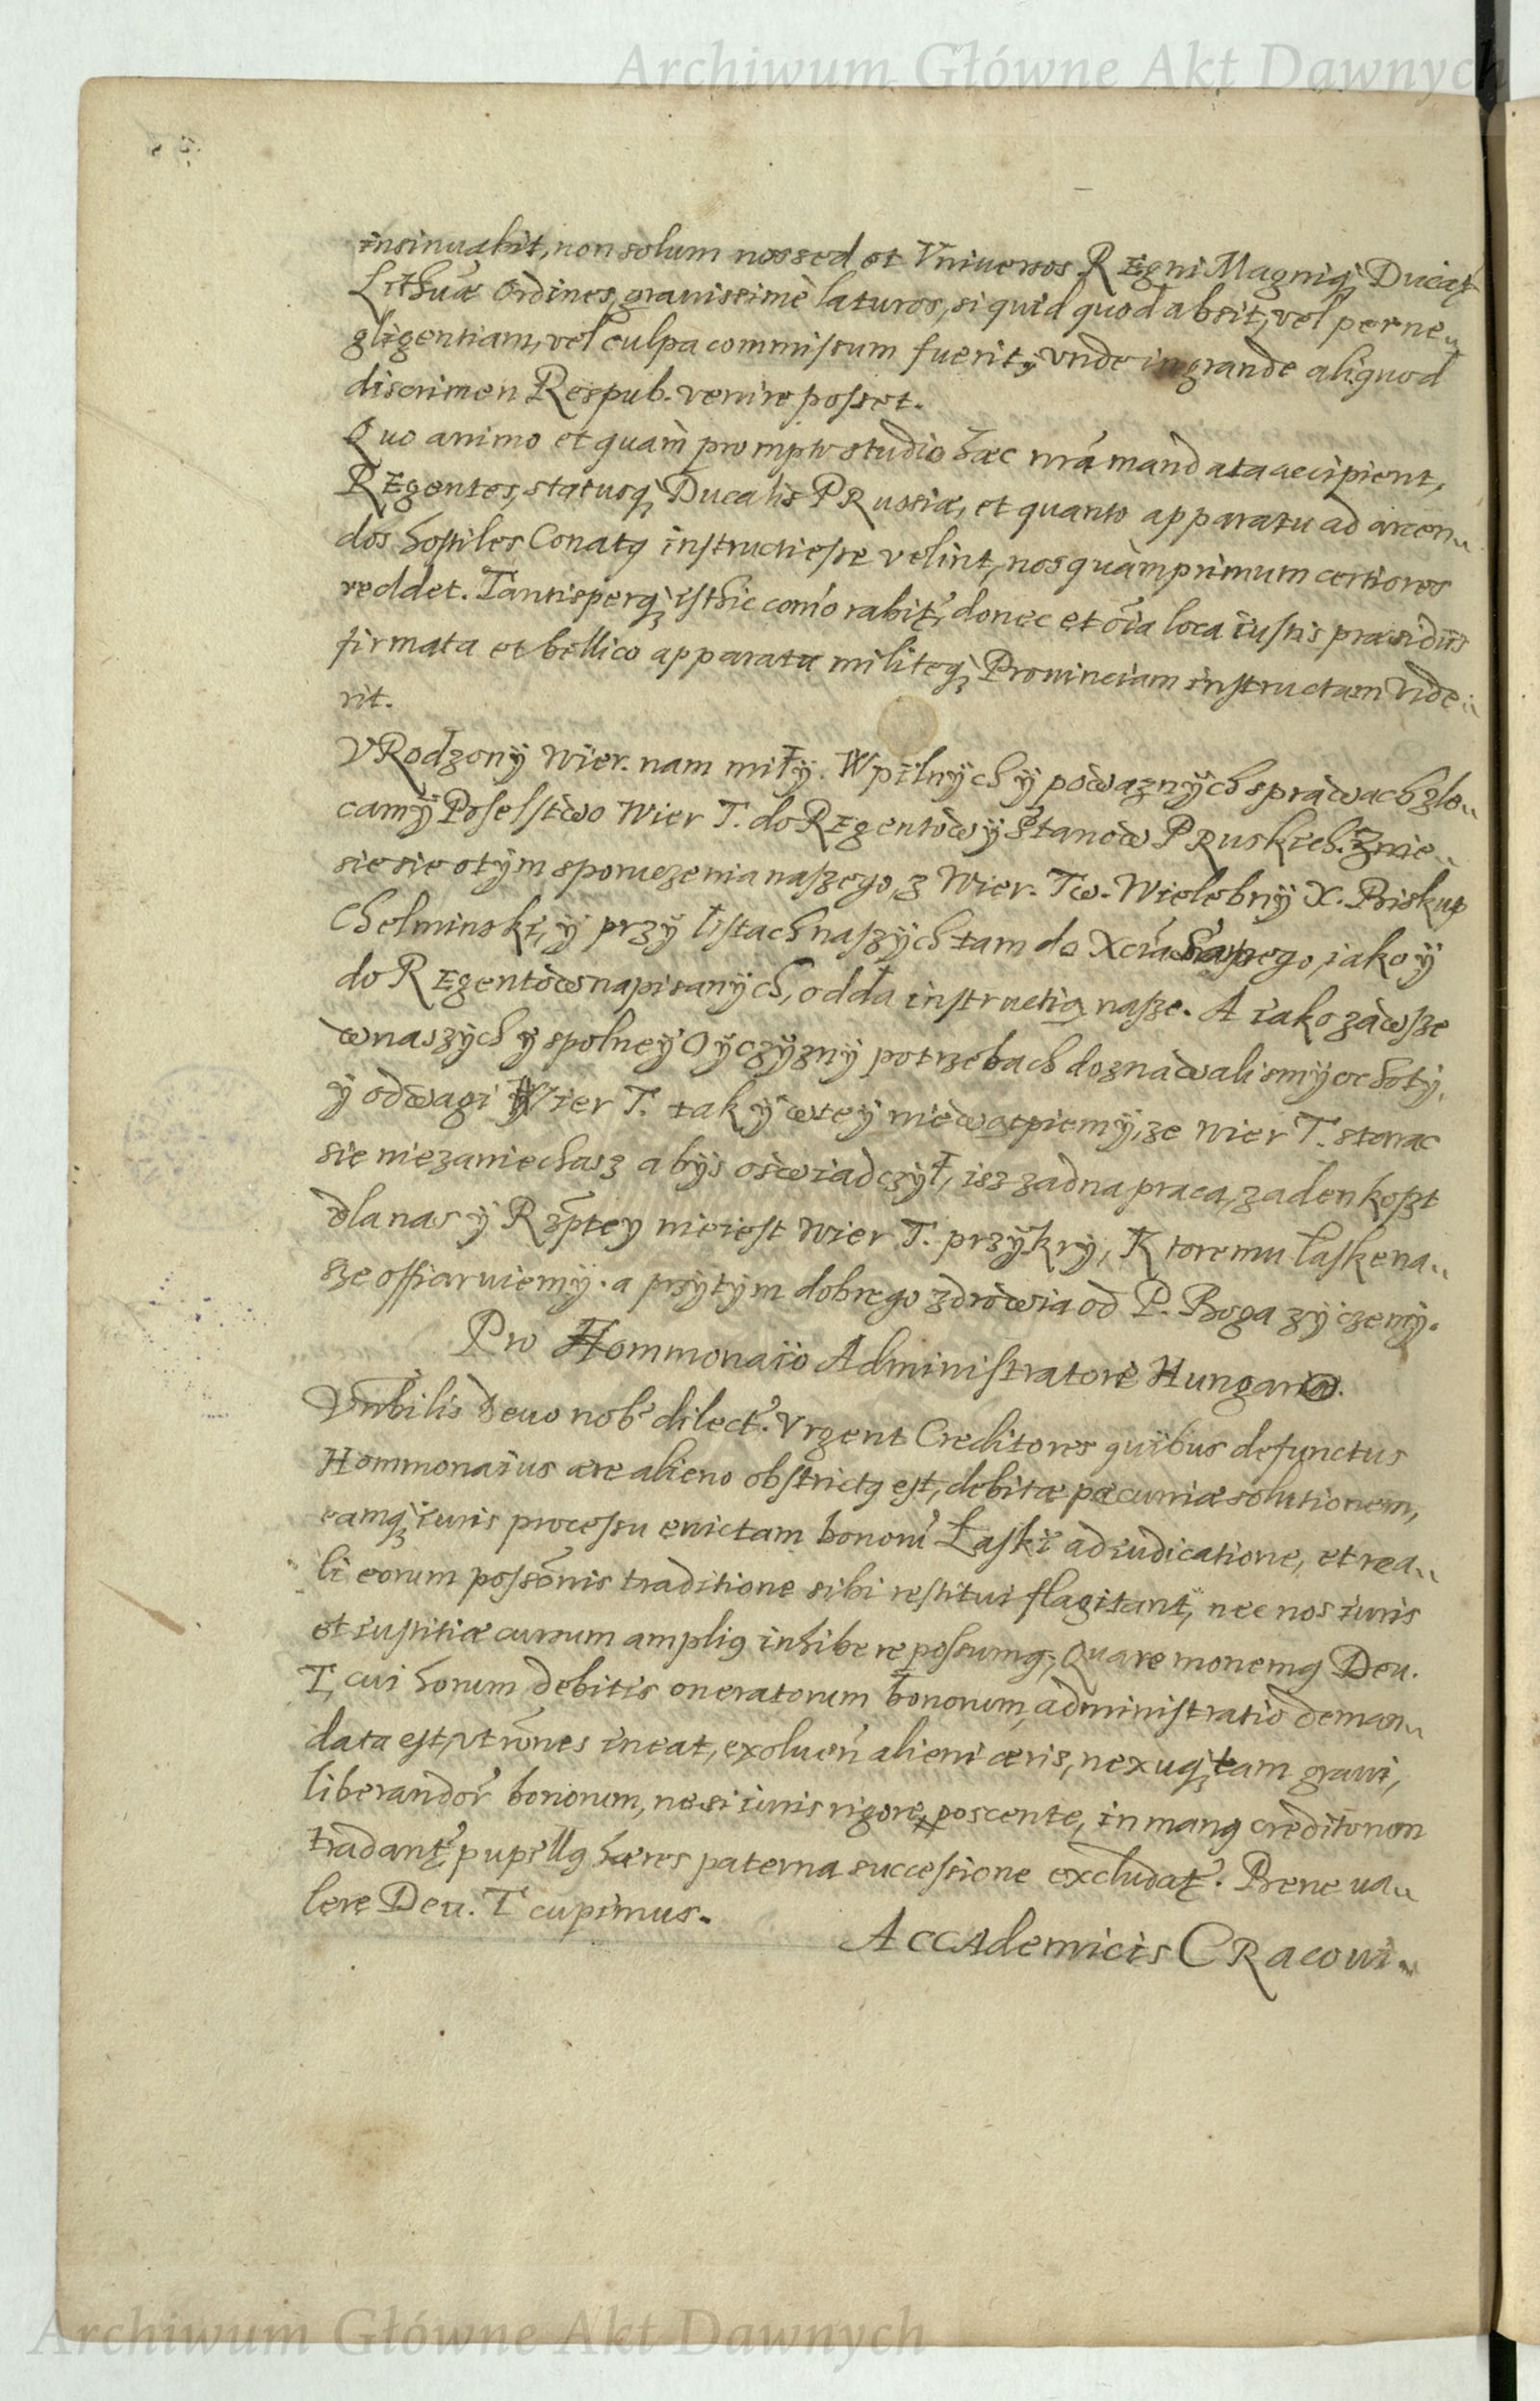 Archiwum Główne Akt Dawnych
insinuabit, non solum nos sed et Vniuersos REgni Magniq; Ducatꝰ
Lithuã Ordines, grauissimè laturos, si quid quod absit, vel per ne„
gligentiam, vel culpa commissum fuerit, vnde in grande aliquod
discrimen Respub. venire posset.
Quo animo et quàm prompto studio hæc nrã mandata accipient,
REgentes, statusq; Ducalis PRussiæ, et quanto apparatu ad arcen„
dos hostiles Conatꝰ instructi esse velint, nos quàmprimum certiores
reddet. Tantisperq; isthic com̃orabitꝰ, donec et õia loca iustis præsidijs
firmata et bellico apparatu militeq; Prouinciam instructam vide„
rit.
VRodzonÿ wier. nam miłÿ. W pilnÿch ÿ powaznÿch sprawach zle„
camÿ Poselstwo Wier T. do REgentow ÿ Stanow PRuskich. Znie„
sie sie o tÿm s poruczenia naszego, z Wier. Tw. Wielebnÿ X. Biskup
Chelminski, ÿ przÿ listach naszÿch tam do Xcia samego, iako ÿ
do REgentow napisanÿch, odda instructią nasze. A iako zawsze
w naszÿch ÿ spolneÿ Oÿczÿznÿ potrzebach doznawalismÿ ochotÿ,
ÿ odwagi Wier T. tak ÿ w teÿ niewątpiemÿ, ze wier T. starac
sie niezaniechasz abÿs oswiadczÿł, isz zadna praca, zaden koszt
dla nas ÿ Rzp̃tey nieiest Wier T. przÿkrÿ, Ktoremu łaske na„
sze offiaruiemÿ. a prsÿtÿm dobrego zdrowia od P. Boga zÿczemÿ.
Pro Hommonaio Administratore Hungaria.
Vñbilis Deuo nobꝰ dilectꝰ. Vrgent Creditores quibus defunctus
Hommonaius ære alieno obstrictꝰ est, debitæ pæcuniæ solutionem,
eamq; iuris processu euictam bonorũ Łaski adiudicatione, et rea„
li eorum possõnis traditione sibi restitui flagitant, nec nos iuris
et iustitiæ cursum ampliꝰ inhibere possumꝰ; Quare monemꝰ Deu.
T, cui horum debitis oneratorum bonorum, administratio deman„
data est, vt rõnes ineat, exoluen̄ alieni æris, nexuq; tam graui,
liberandorꝰ bonorum, ne si iuris rigore poscente, in manꝰ creditorum
tradantꝰ, pupillꝰ hæres paterna successione excludatꝰ. Bene ua„
lere Deu. T cupimus.
ACCAdemicis CRacoui„
Archiwum Główne Akt Dawnych